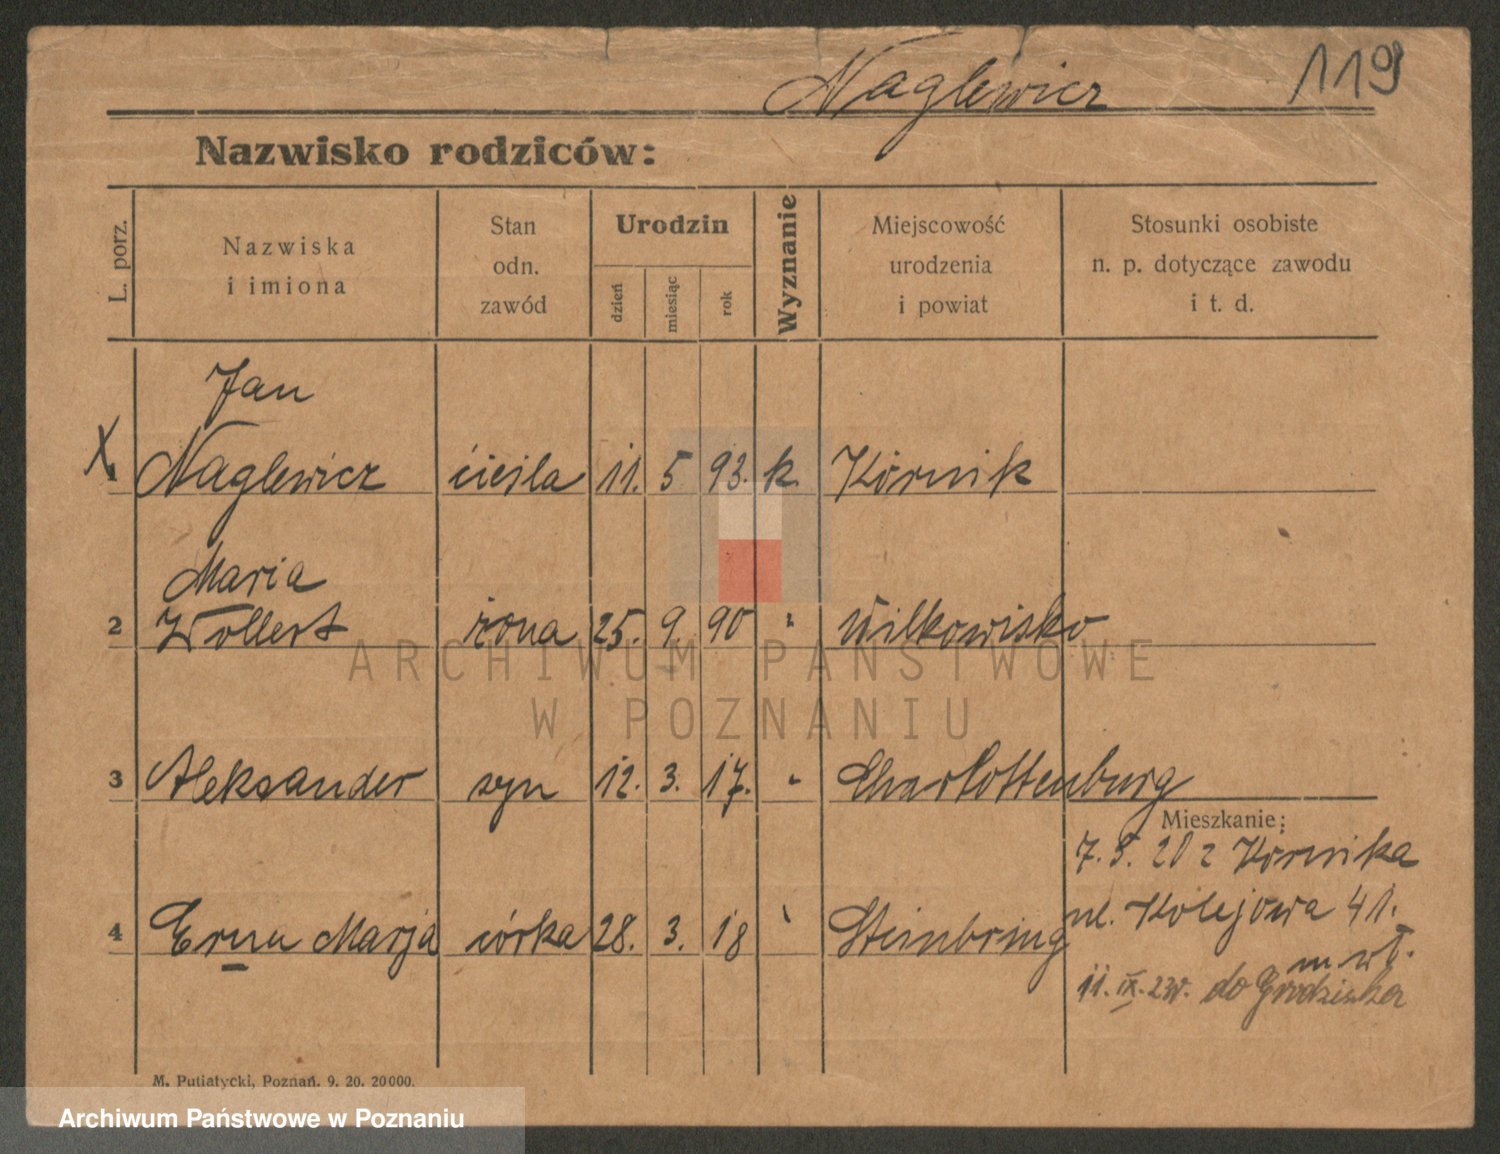 Naglewicz 119
Nazwisko rodziców:
L. porz.
Nazwiska
i imiona
Stan
odn.
zawód
Urodzin
dzień
miesiąc
rok
Wyznanie
Miejscowość
urodzenia
i powiat
Stosunki osobiste
n. p. dotyczące zawodu
i t. d.
Jan
X 1 Naglewicz cieśla 11. 5 93. k. Kórnik
Maria
2 Wollert żona 25. 9. 90 " Wilkowisko
ARCHIWUM PAŃSTWOWE
W POZNANIU
3 Aleksander syn 12. 3. 17. " Charlottenburg
Mieszkanie:
7. 5. 20 z Kórnika
ul. Kolejowa 41.
4 Erna Marja córka 28. 3. 18 " Steinbring
11. IX. 23r. do Grodziska
M. Putiatycki, Poznań. 9. 20. 20000.
Archiwum Państwowe w Poznaniu